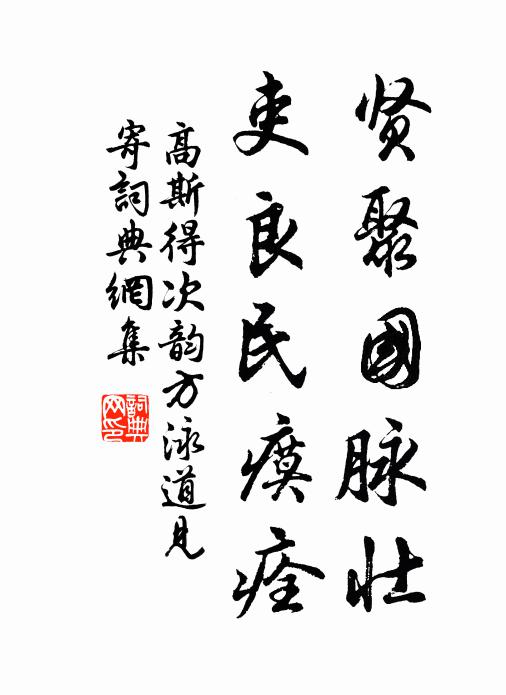 贤聚國脉壮
吏良民瘼痊
高斯得次韵方泳道見
寄詞典網集
詞典网印